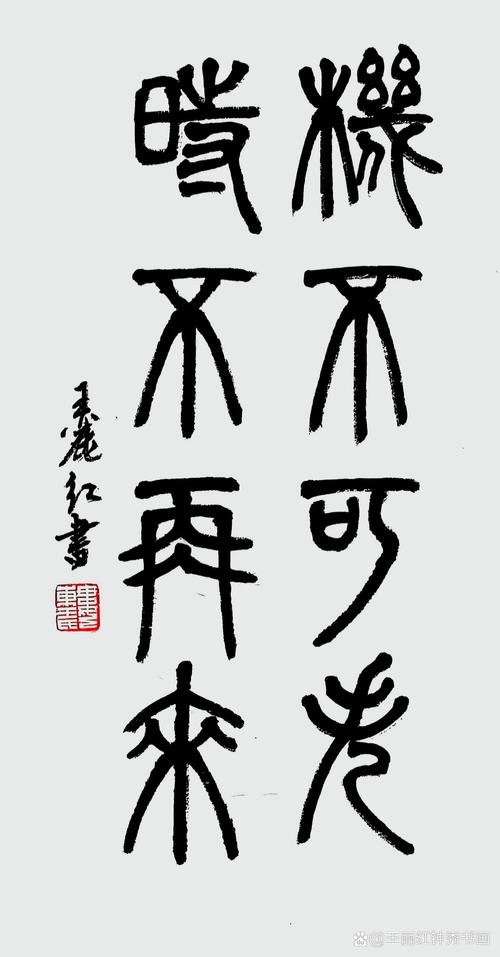 機不可失
時不再來
王麗红書
@王丽红钟秀书画